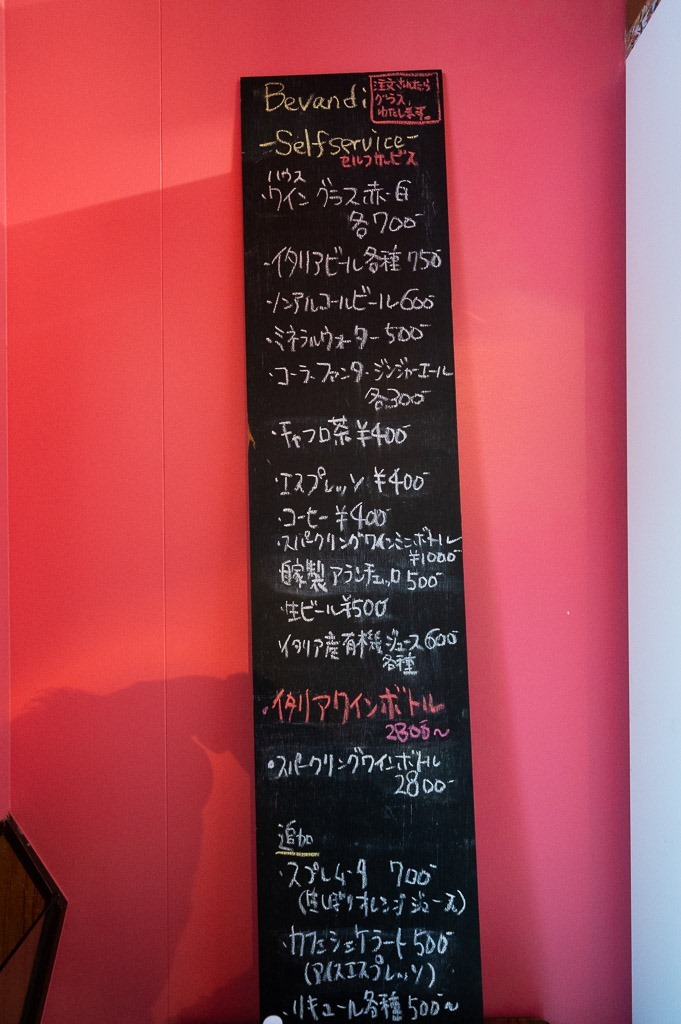 Bevandi
注文されたら
グラス、
わたします。
-Selfservice-
セルフサービス
ハウス
・ワイン グラス赤・白
各700-
・イタリアビール各種 750-
・ノンアルコールビール600-
・ミネラルウォーター 500-
・コーラ・ファンタ・ジンジャーエール
各300-
・チャフロ茶 ¥400-
・エスプレッソ ¥400-
・コーヒー ¥400-
・スパークリングワインミニボトル
¥1000-
自家製アランチェッロ 500-
・生ビール¥500
・イタリア産有機ジュース 600-
各種
・イタリアワインボトル
2800～
・スパークリングワインボトル
2800-
追加
・スプレムータ 700-
(生しぼりオレンジジュース)
・カフェシェケラート 500-
(アイスエスプレッソ)
・リキュール各種 500～